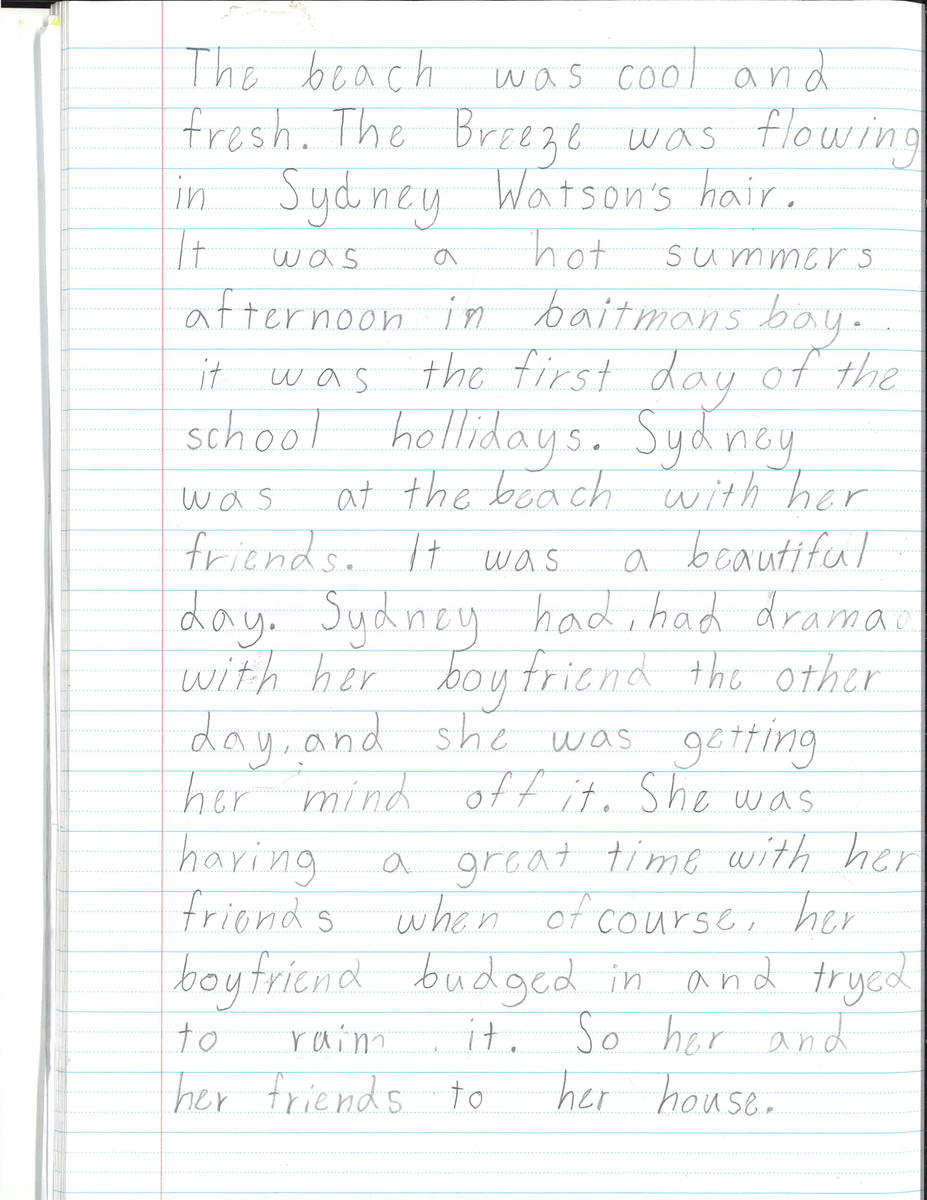 The beach was cool and
fresh. The Breeze was flowing
in Sydney Watson's hair.
It was a hot summers
afternoon in baitmans bay.
it was the first day of the
school hollidays. Sydney
was at the beach with her
friends. It was a beautiful
day. Sydney had, had drama
with her boyfriend the other
day, and she was getting
her mind off it. She was
having a great time with her
friends when of course, her
boyfriend budged in and tryed
to ruin it. So her and
her friends to her house.